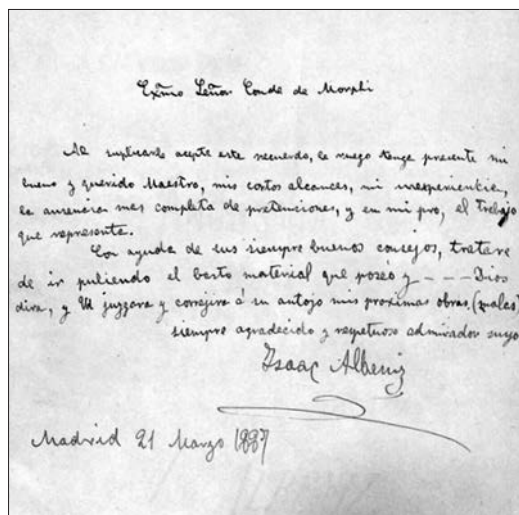 Exmo Señor Conde de Morphi
Al suplicarle acepte este recuerdo, le ruego tenga presente mi
bueno y querido Maestro, mis cortos alcances, mi inexperiencia,
la ausencia mas completa de pretenciones, y en mi pro, el trabajo
que representa.
Con ayuda de sus siempre buenos consejos, tratare
de ir puliendo el basto material que poseo y - - - - Dios
dira, y Vd juzgara y correjira á su antojo mis proximas obras, (malas)
siempre agradecido y respetuoso admirador suyo
Isaac Albeniz
Madrid 21 Marzo 1887